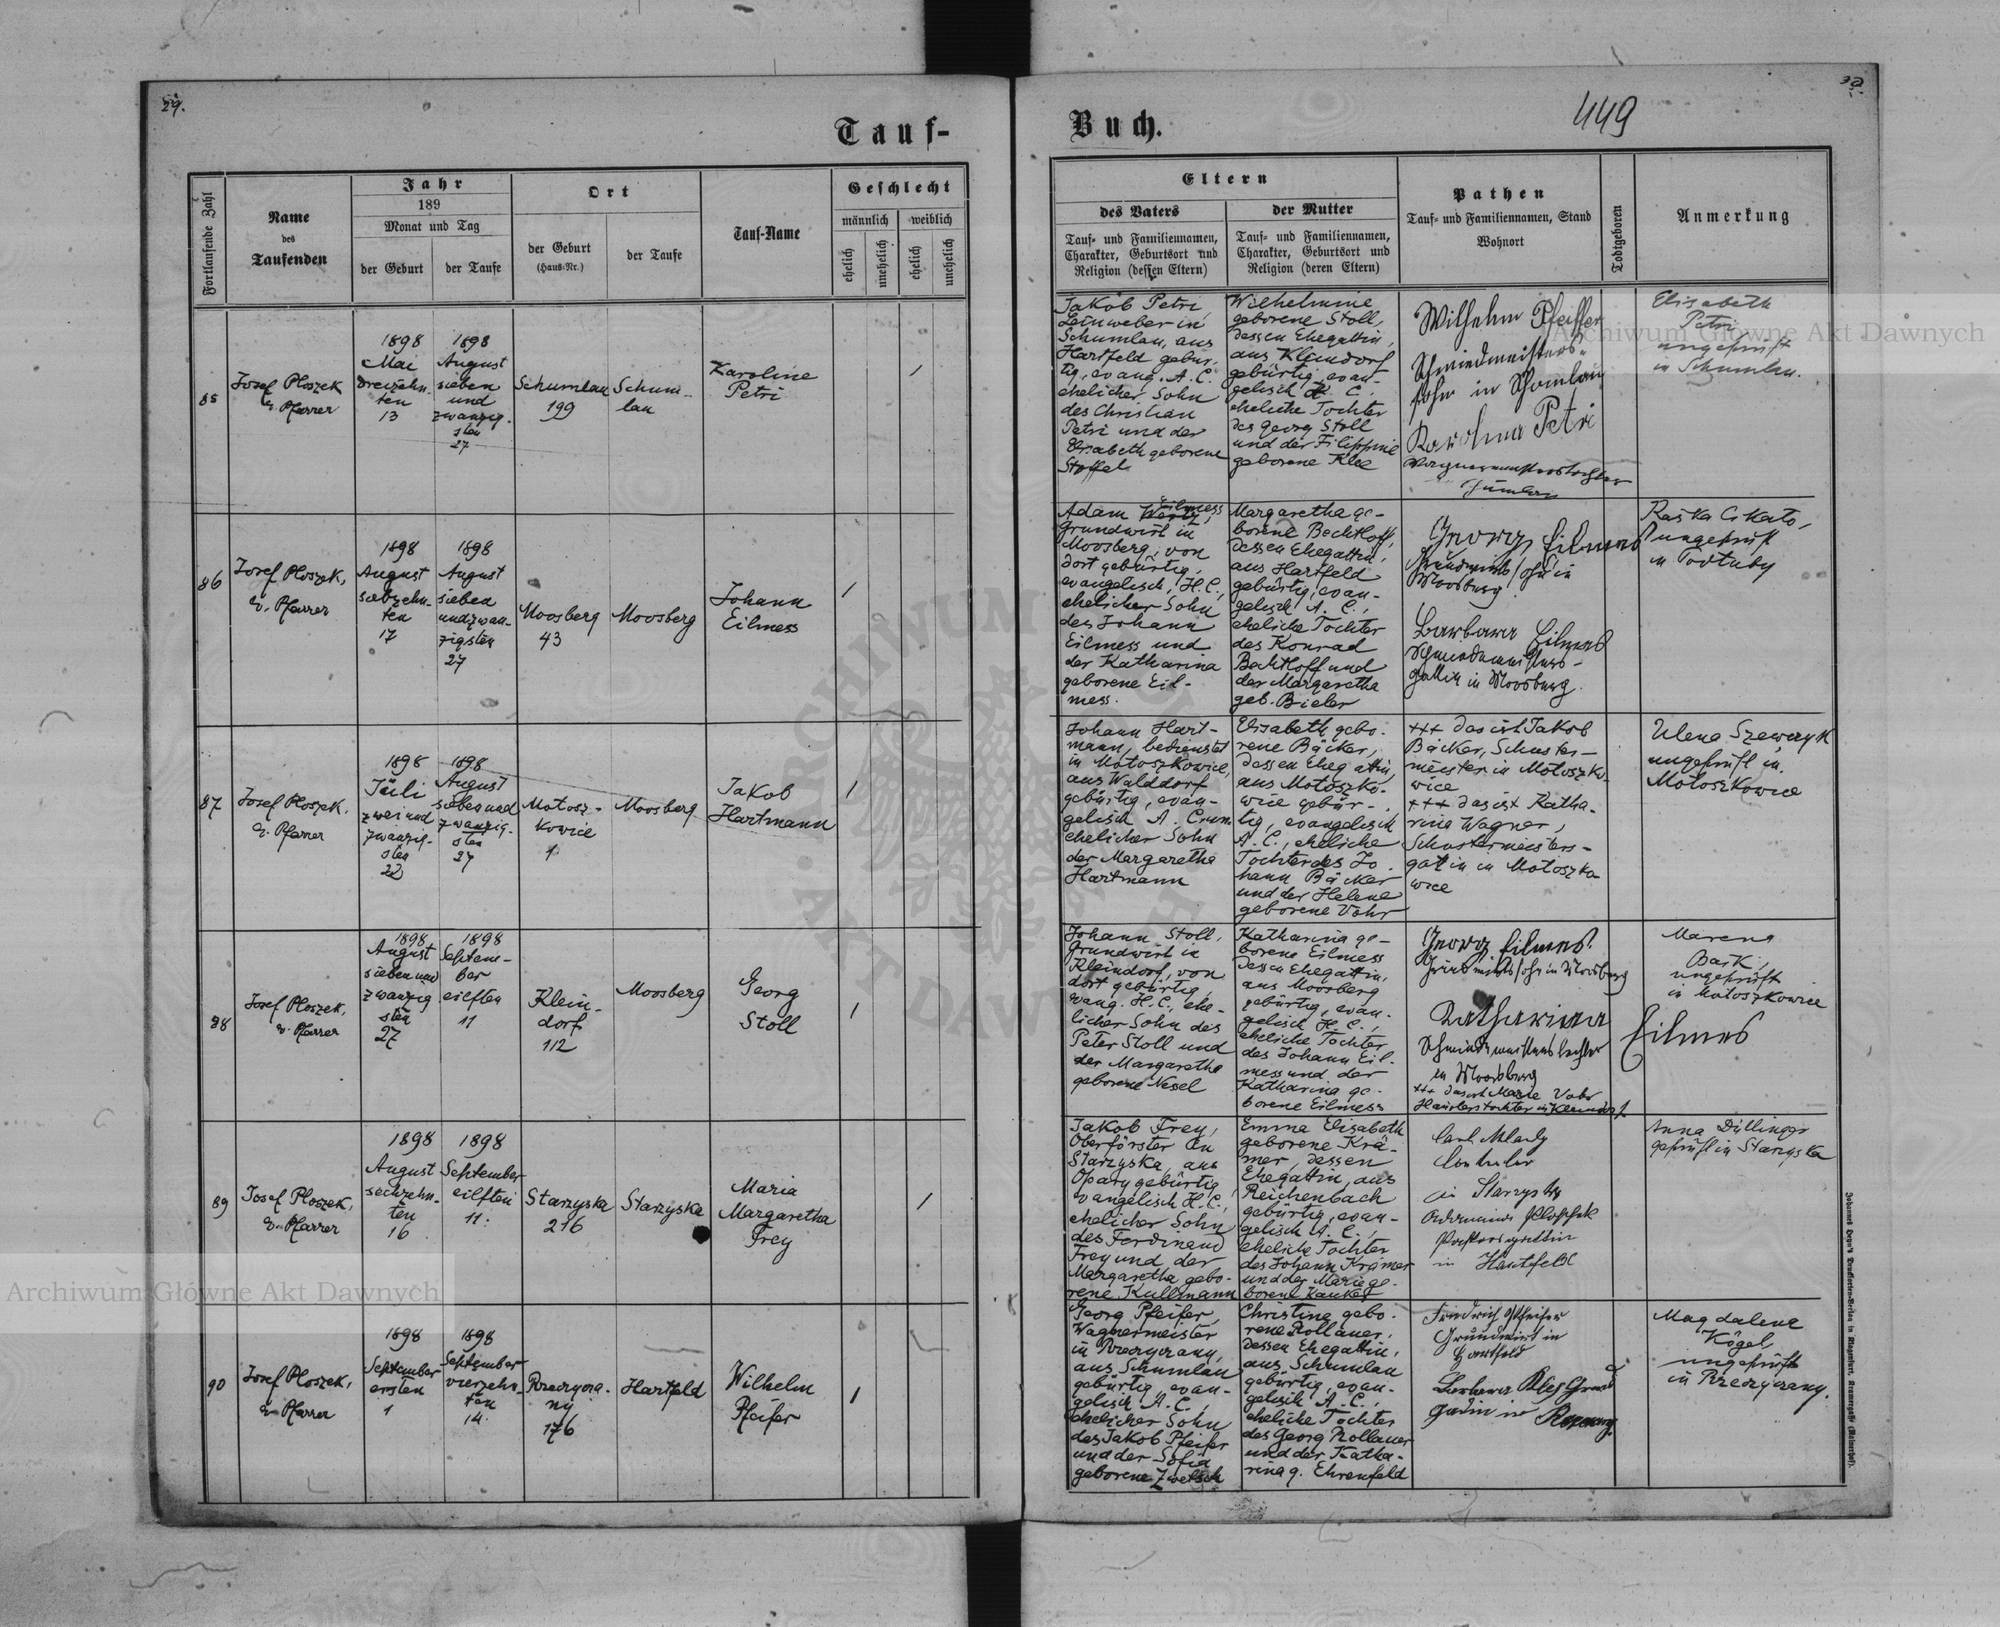 29.
Tauf-
Fortlaufende Zahl
Name
des
Taufenden
Jahr
189
Monat und Tag
der Geburt
der Taufe
Ort
der Geburt
(Haus-Nr.)
der Taufe
Tauf-Name
Geschlecht
männlich
weiblich
ehelich
unehelich
ehelich
unehelich
85
Josef Ploszek
e. Pfarrer
1898
Mai
dreizehn-
ten
13
1898
August
sieben
und
zwanzig-
sten
27
Schumlau
199
Schum-
lau
Karoline
Petri
86
Josef Ploszek,
e. Pfarrer
1898
August
siebzehn-
ten
17
1898
August
sieben
undzwan-
zigsten
27
Moosberg
43
Moosberg
Johann
Eilmess
87
Josef Ploszek.
e. Pfarrer
1898
Juli
zwei und
zwanzig-
sten
22
1898
August
sieben und
zwanzig-
sten
27
Motosz-
kowice
1
Moosberg
Jakob
Hartmann
88
Josef Ploszek,
e. Pfarrer
1898
August
sieben und
zwanzig
sten
27
1898
Septem-
ber
eilften
11
Klein-
dorf
112
Moosberg
Georg
Stoll
89
Josef Ploszek,
e. Pfarrer
1898
August
sechzehn-
ten
16
1898
September
eilften
11.
Starzyska
216
Starzyska
Maria
Margaretha
Frey
90
Josef Ploszek,
e. Pfarrer
1898
September
ersten
1
1898
September
vierzehn-
ten
14.
176
Hartfeld
Wilhelm
Pfeifer
Buch.
449
Eltern
des Vaters
der Mutter
Tauf- und Familiennamen,
Charakter, Geburtsort und
Religion (dessen Eltern)
Tauf- und Familiennamen,
Charakter, Geburtsort und
Religion (deren Eltern)
Pathen
Tauf- und Familiennamen, Stand
Wohnort
Todtgeboren
Anmerkung
Jakob Petri,
Leinweber in
Schumlau, aus
Hartfeld gebür-
tig, evang. A. C.
ehelicher Sohn
des Christian
Petri und der
Elisabeth geborene
Stoffel
Wilhelmine
geborene Stoll,
dessen Ehegattin,
aus Kleindorf
gebürtig, evan-
gelisch H. C.,
eheliche Tochter
des Georg Stoll
und der Filippine
geborene Klee
Wilhelm Pfeiffer
Schmiedmeisters-
sohn in Schomlau
Karolina Petri
Elisabeth
Petri
ungeprüft
in Schumlau.
Adam Eilmess,
Grundwirt in
Moosberg, von
dort gebürtig,
evangelisch, H. C.,
ehelicher Sohn
des Johann
Eilmess und
der Katharina
geborene Eil-
mess.
Margaretha ge-
borene Bechtloff,
dessen Ehegattin,
aus Hartfeld
gebürtig, evan-
gelisch A. C.,
eheliche Tochter
des Konrad
Bechtloff und
der Margaretha
geb. Bieler
Georg Eilmes
Grundwirts sohn in
Moosberg
Barbara Eilmes
Schmiedmeisters-
gattin in Moosberg.
ungeprüft
Johann Hart-
mann, bedienstet
in Motoszkowice,
aus Walddorf
gebürtig, evan-
gelisch A. C.
ehelicher Sohn
der Margaretha
Hartmann
Elisabeth gebo-
rene Bäcker,
dessen Ehegattin,
aus Motoszko-
wice gebür-
tig, evangelisch
A. C., eheliche
Tochter des Jo-
hann Bäcker
und der Helene
geborene Vohr
+++ das ist Jakob
Bäcker, Schuster-
meister in Motoszko-
wice
+++ das ist Katha-
rina Wagner,
Schustermeisters-
gattin in Motoszko
wice
Ulena Szewczyk
ungeprüft in
Motoszkowice
Johann Stoll,
Grundwirt in
Kleindorf, von
dort gebürtig,
evang. H. C., ehe-
licher Sohn des
Peter Stoll und
der Margaretha
geborene Nesel
Katharina ge-
borene Eilmess
dessen Ehegattin,
aus Moosberg
gebürtig, evan-
gelisch H. C.,
eheliche Tochter
des Johann Eil-
mess und der
Katharina ge-
borene Eilmess
Georg Eilmes.
Grundwirtssohn in Moosberg
Katharina Eilmes
Schmiedemeisterstochter
in Moosberg
+++ das ist Marie Vohr
Häuslerstochter in Kleindorf.
Marena
Baik,
ungeprüft
in Motoszkowice
Jakob Frey,
Oberförster in
Starzyska, aus
Opary gebürtig
evangelisch H. C.,
ehelicher Sohn
des Ferdinand
Frey und der
Margaretha gebo-
rene Kullmann
Emma Elisabeth
geborene Krä-
mer, dessen
Ehegattin, aus
Reichenbach
gebürtig, evan-
gelisch A. C.,
eheliche Tochter
des Johann Krämer
und der Marie ge-
borene Kanket
in Starzyska
Pastorsgattin
in Hartfeld
Anna Dillinger
geprüft in Starzyska
Georg Pfeifer,
Wagnermeister
in
aus Schumlau
gebürtig, evan-
gelisch A. C.,
ehelicher Sohn
des Jakob Pfeifer
und der Sofia
geborene Zwetsch
Christina gebo-
rene Rollauer,
dessen Ehegattin,
aus Schumlau
gebürtig, evan-
gelisch A. C.,
eheliche Tochter
des Georg Rollauer
und der Katha-
rina g. Ehrenfeld
Friedrich
Grundwirt in
Hartfeld
Magdalena
Kögel,
ungeprüft
in
Archiwum Główne Akt Dawnych
Archiwum Główne Akt Dawnych